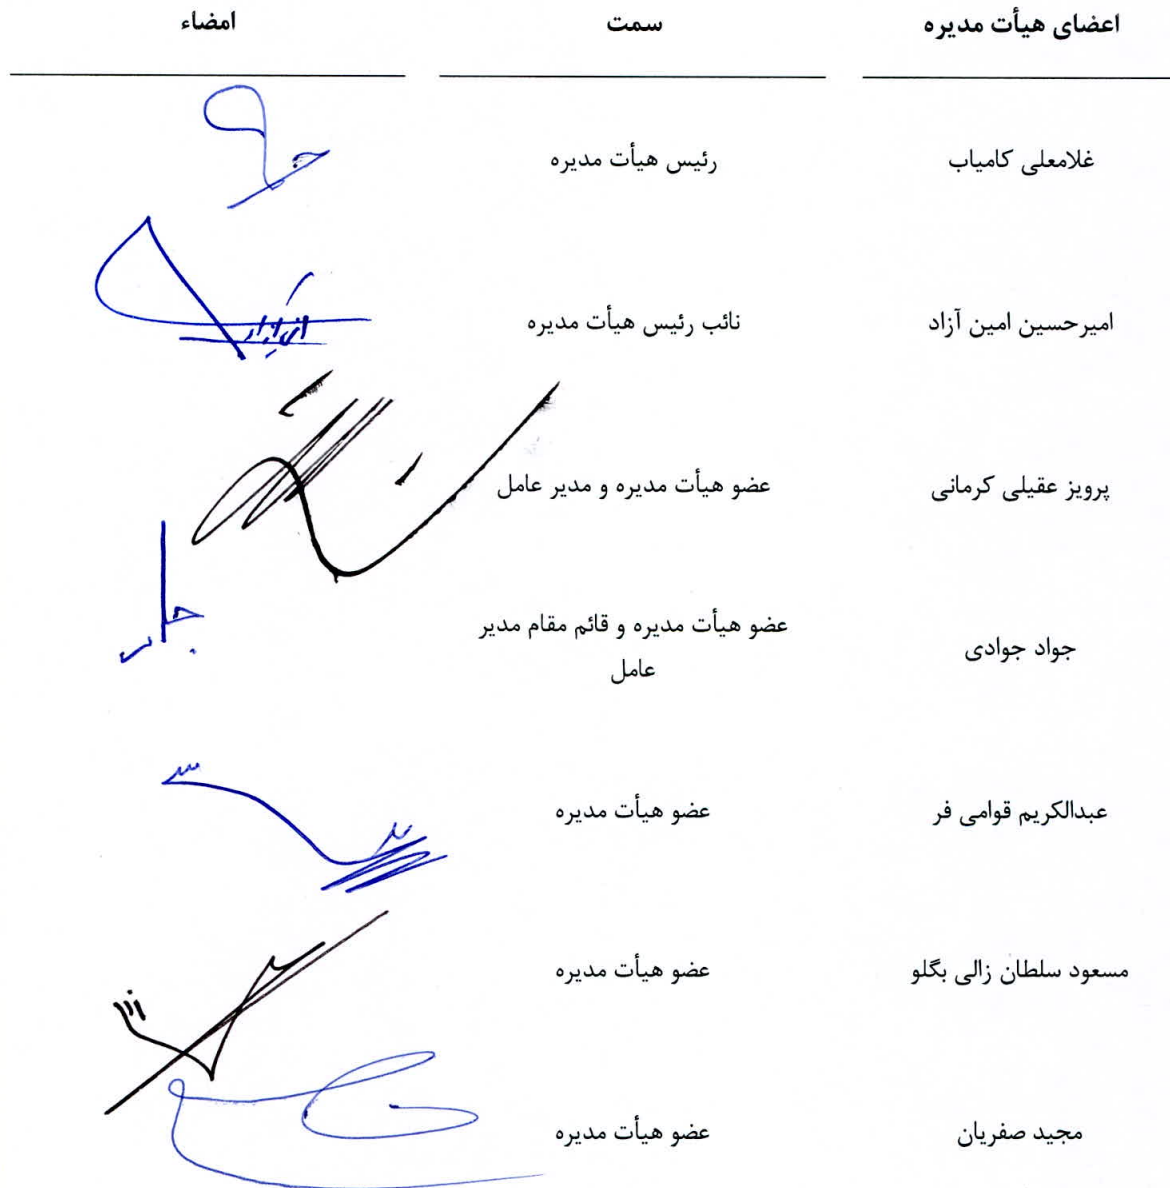 اعضای هیأت مدیره سمت امضاء
غلامعلی کامیاب رئیس هیأت مدیره
امیرحسین امین آزاد نائب رئیس هیأت مدیره
پرویز عقیلی کرمانی عضو هیأت مدیره و مدیر عامل
جواد جوادی عضو هیأت مدیره و قائم مقام مدیر
عامل
عبدالکریم قوامی فر عضو هیأت مدیره
مسعود سلطان زالی بگلو عضو هیأت مدیره
مجید صفریان عضو هیأت مدیره